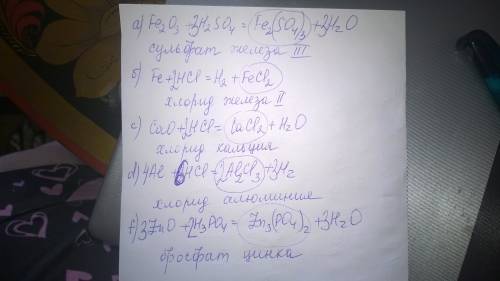 а) Fe2O3 + 3H2SO4 = Fe2(SO4)3 + 3H2O
сульфат железа III
б) Fe + 2HCl = H2 + FeCl2
хлорид железа II
c) CaO + 2HCl = CaCl2 + H2O
хлорид кальция
d) 4Al + 6HCl = 2Al2Cl3 + 3H2
хлорид алюминия
f) 3ZnO + 2H3PO4 = Zn3(PO4)2 + 3H2O
фосфат цинка